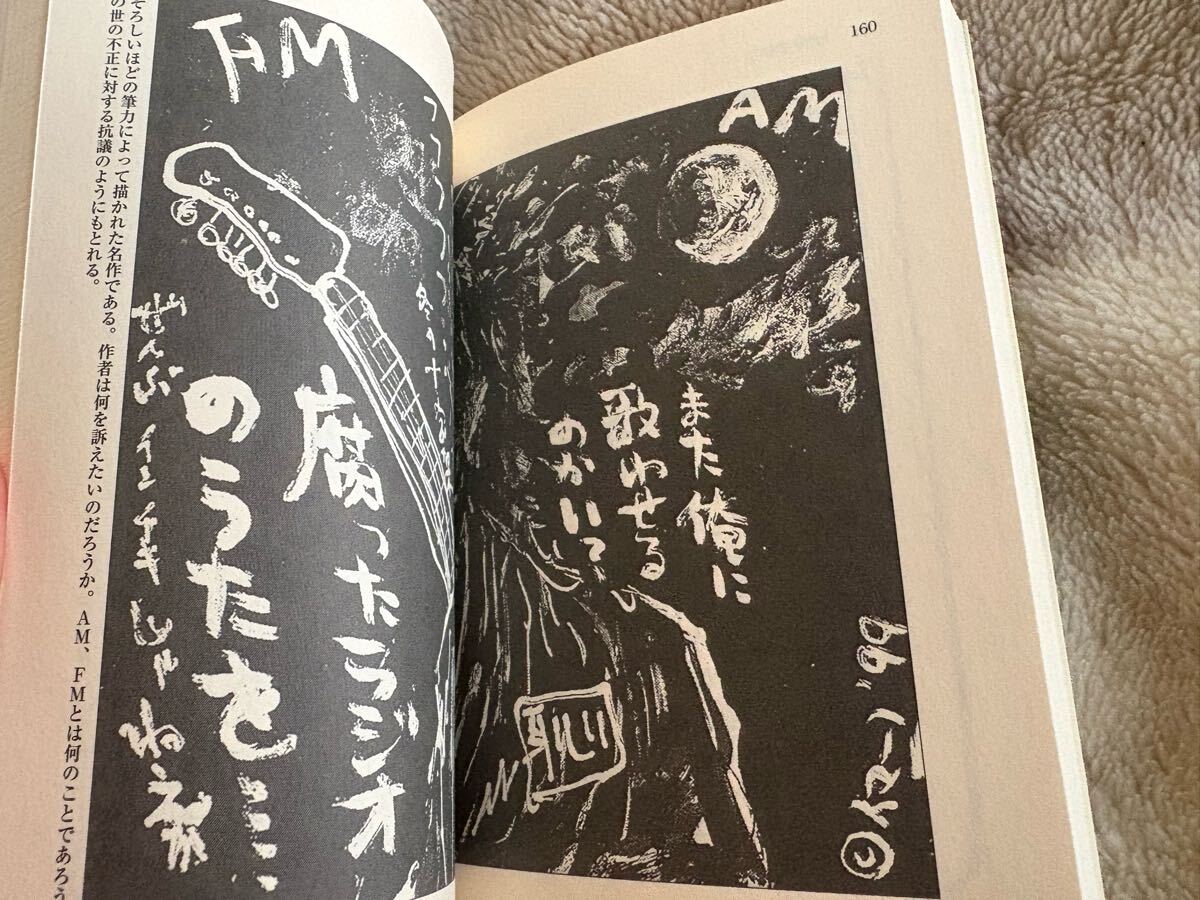 160
AM
また俺に
歌わせる
のかいて
恥
©イマーノ '99
FM
腐ったラジオ
のうたを…
ぜんぶ インチキ じゃねえ
そろしいほどの筆力によって描かれた名作である。作者は何を訴えたいのだろうか。AM、FMとは何のことであろう
の世の不正に対する抗議のようにもとれる。